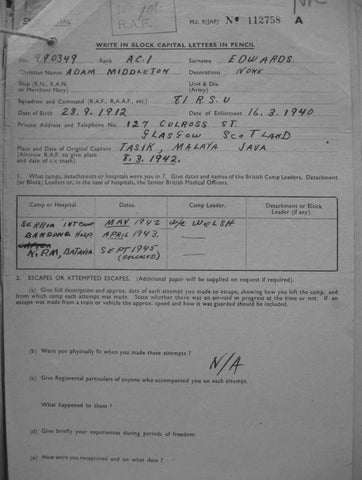 M.I. 9/JAP/ Nº 112758 A
R.A.F.
WRITE IN BLOCK CAPITAL LETTERS IN PENCIL
No. 990349 Rank AC.1 Surname EDWARDS
Christian Names ADAM MIDDLETON Decorations NONE
Ship (R.N., R.A.N. or Merchant Navy) Unit & Div. (Army)
Squadron and Command (R.A.F., R.A.A.F., etc.) 81 R.S.U
Date of Birth 23.9.1912 Date of Enlistment 16.3.1940
Private Address and Telephone No. 127 CULROSS ST.
GLASGOW SCOTLAND
Place and Date of Original Capture TASIK, MALAYA JAVA
(Aircrew R.A.F. to give place and date of a/c crash). 8.3.1942.
1. What camps, or hospitals were you in ? Give dates and names of the British Camp Leaders, Detachment
(or Block) Leaders or, in the case of hospitals, the Senior British Medical Officers.
Camp or Hospital. Dates. Camp Leader. Detachment or Block Leader (if any).
MAY 1942 W/C WELSH
BANDUNG HOSP. APRIL 1943. —
K.P.M, BATAVIA. SEPT 1945 —
(RELEASED)
2. ESCAPES OR ATTEMPTED ESCAPES. (Additional paper will be supplied on request if required).
(a) Give full description and approx. date of each attempt you made to escape, showing how you left the camp, and
from which camp each attempt was made. State whether there was an air-raid in progress at the time or not. If an
escape was made from a train or vehicle the approx. speed and how it was guarded should be included.
(b) Were you physically fit when you made these attempts ?
N/A
(c) Give Regimental particulars of anyone who accompanied you on each attempt.
What happened to them ?
(d) Give briefly your experiences during periods of freedom.
(e) How were you recaptured and on what date ?